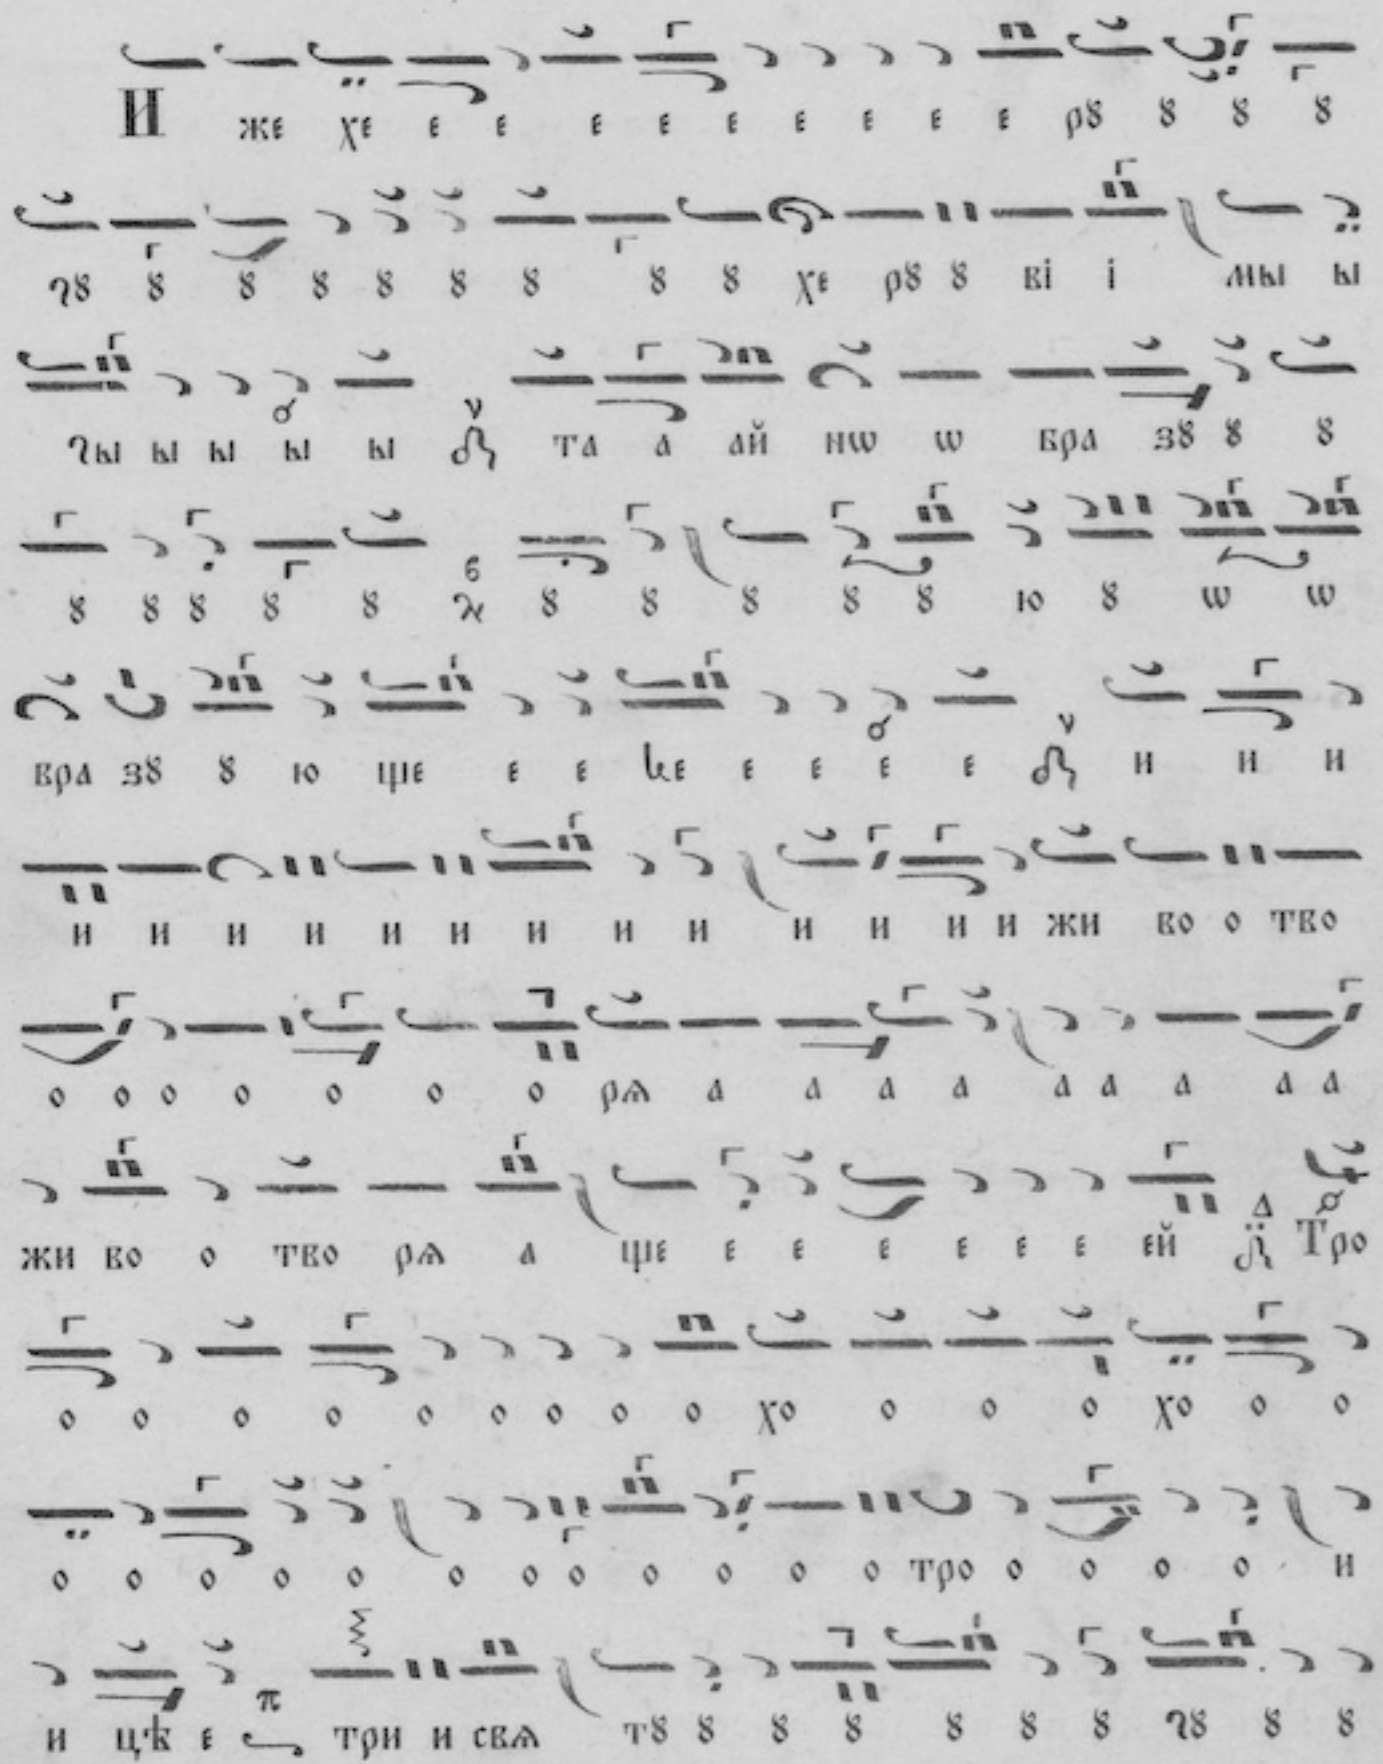 И же хе е е е е е е е е е рꙋ ꙋ ꙋ ꙋ
гꙋ ꙋ ꙋ ꙋ ꙋ ꙋ ꙋ ꙋ ꙋ хе рꙋ ꙋ ві і мы ы
гы ы ы ы ы та а ай нѡ ѡ бра зꙋ ꙋ ꙋ
ꙋ ꙋ ꙋ ꙋ ꙋ ꙋ ꙋ ꙋ ꙋ ꙋ ю ꙋ ѡ ѡ
бра зꙋ ꙋ ю ще е е е е е е и и и
и и и и и и и и и и и и и жи во о тво
о о о о о о о рѧ а а а а а а а а а
жи во о тво рѧ а ще е е е е е е ей Тро
о о о о о о о о о хо о о о хо о о
о о о о о о о о о о о о тро о о о о и
и цѣ е π три и свѧ тꙋ ꙋ ꙋ ꙋ ꙋ ꙋ ꙋ гꙋ ꙋ ꙋ